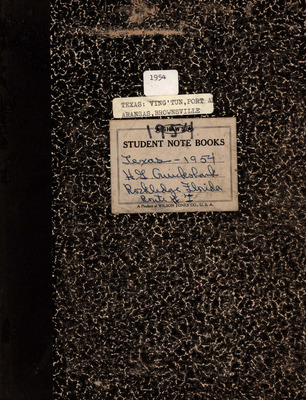 1954
TEXAS: VING'TUN, PORT A
ARANSAS, BROWNSVILLE
1954
STUDENT NOTE BOOKS
Texas -- 1954
H G Cruikshank
Rockledge Florida
Route # I
A Product of WILSON JONES CO., U.S.A.